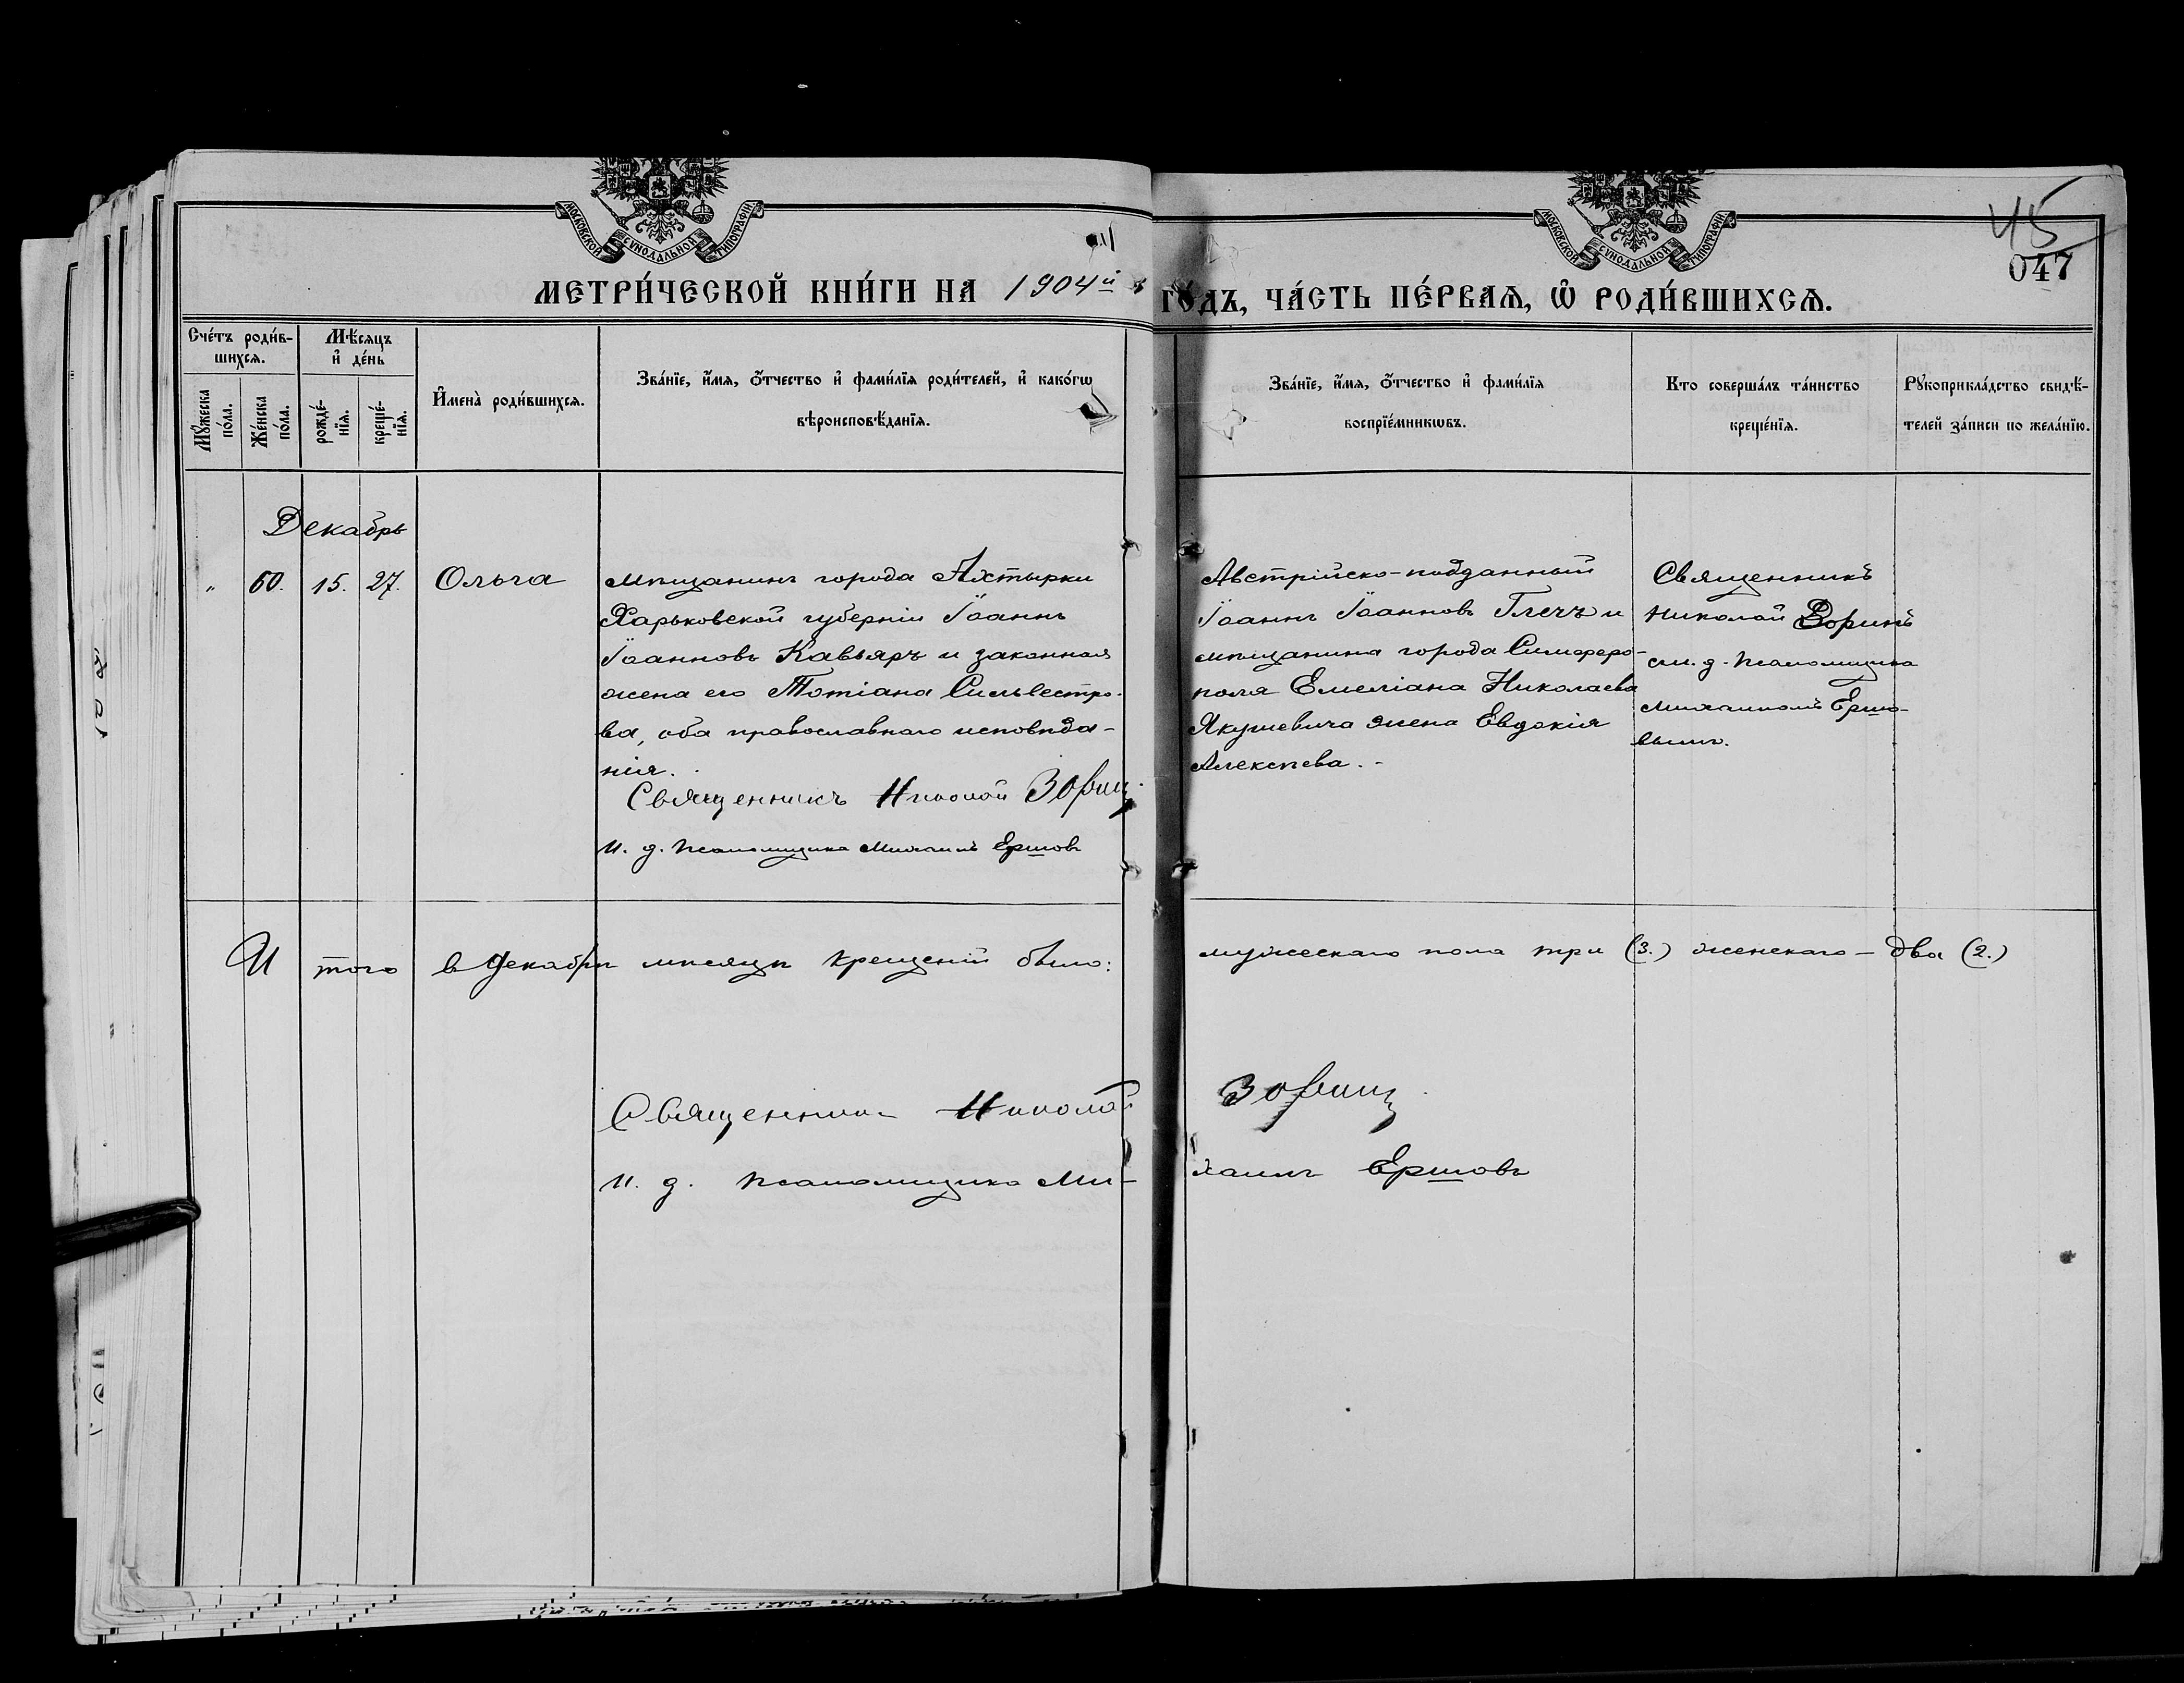 МОСКОВСКОЙ СѴНОДАЛЬНОЙ ТИПОГРАФІИ
МОСКОВСКОЙ СѴНОДАЛЬНОЙ ТИПОГРАФІИ
45
047
МЕТРИ́ЧЕСКОЙ КНИ́ГИ НА 1904й
ГО́ДЪ, ЧА́СТЬ ПЕ́РВАѦ, Ѡ РОДИ́ВШИХСѦ.
Сче́тъ роди́в-
шихсѧ.
Мꙋ́жеска
по́ла.
Же́нска
по́ла.
Мѣ́сѧцъ
и҆ де́нь
рожде́-
нїѧ.
креще́-
нїѧ.
И҆мена̀ роди́вшихсѧ.
Зва́нїе, и҆́мѧ, ѻ҆́тчество и҆ фами́лїѧ роди́телей, и҆ како́гѡ
вѣроисповѣ́данїѧ.
Зва́нїе, и҆́мѧ, ѻ҆́тчество и҆ фами́лїѧ
воспрїе́мникѡвъ.
Кто соверша́лъ та́инство
креще́нїѧ.
Рꙋкоприкла́дство свидѣ́-
телей за́писи по жела́нїю.
Декабрь
" 60. 15. 27. Ольга
Мѣщанинъ города Ахтырки
Харьковской губерніи Іоаннъ
Іоанновъ Кавьяръ и законная
жена его Татіана Сильвестро-
ва, оба православнаго исповѣда-
нія.
Священникъ Николай Зоринъ
И. д. псаломщика Михаилъ Ершовъ
Австрійско-подданный
Іоаннъ Іоанновъ Глечъ и
мѣщанина города Симферо-
поля Емеліана Николаева
Якушевича жена Евдокія
Алексѣева.-
Священникъ
Николай Зоринъ
съ и. д. псаломщика
Михаиломъ Ершо-
вымъ.
И того в декабрѣ мѣсяцѣ крещеній было:
мужескаго пола три (3.) женскаго - два (2.)
Священник Николай
Зоринъ
И. д. псаломщика Ми-
хаилъ Ершовъ